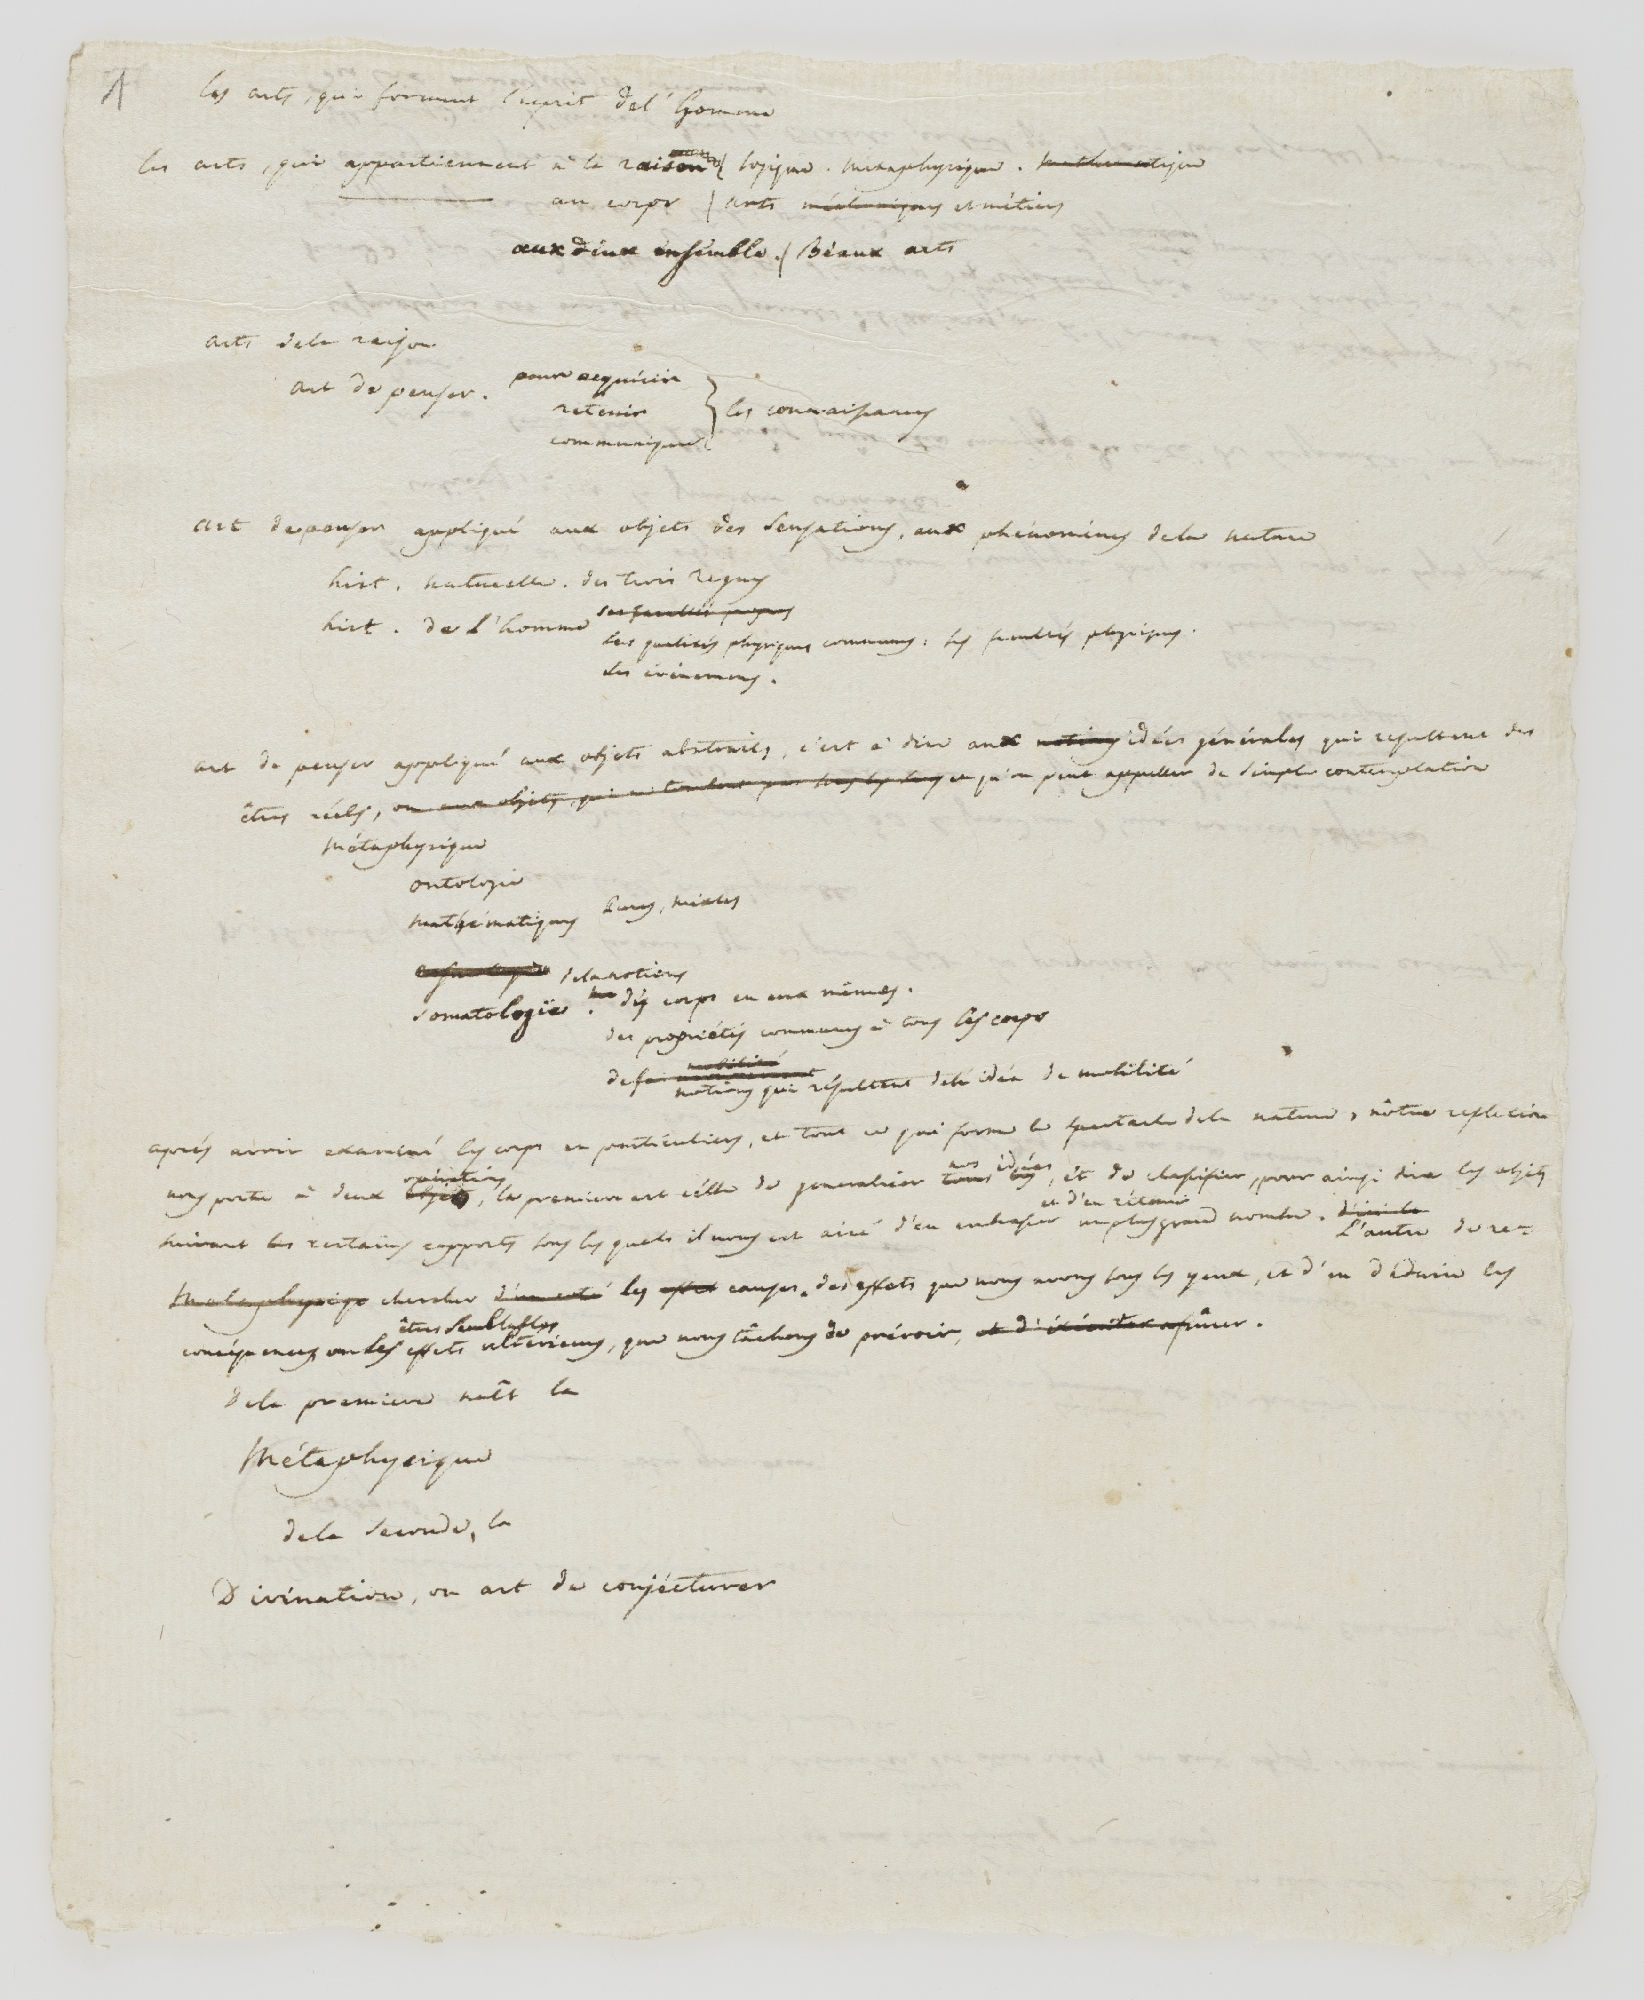 A
les arts, qui forment l'esprit de l'homme
les arts, qui appartiennent à la raison { logique . metaphysique . mathematique
au corps { arts méchaniques et métiers
aux deux ensemble. { Beaux arts
arts de la raison
art de penser. pour acquérir
retenir } les connaissances
communiquer
art de penser appliqué aux objets des sensations, aux phénomènes de la nature
hist. naturelle. des trois regnes
hist. de l'homme ses facultés propres
les qualités physiques communes. les facultés physiques.
les évènemens.
art de penser appliqué aux objets abstraits, c'est à dire aux notions idées générales qui resultent des
êtres réels, ou aux objets, qui ne tombent pas sous les sens et qu'on peut appeller de simple contemplation
Métaphysique
ontologie
mathématiques pures, mixtes
de la notions
Somatologie. des corps en eux mêmes.
des propriétés communes à tous les corps
mobilité
des notions qui résultent de l'idée de mobilité
après avoir examiné les corps en particuliers, et tout ce qui forme le spectacle de la nature, nôtre reflexion
opérations nos idées
nous porte à deux objets, la premiere est celle de generaliser tous les, et de classifier, pour ainsi dire les objets
et d'en rétenir
suivant les certains rapports sous les quels il nous est aisé d'en embrasser un plus grand nombre. L'autre de re-
Metaphysique chercher d'un coté les effet causes des effets que nous avons sous les yeux, et d'en déduire les
êtres semblables
conséquences ou les effets ultérieurs, que nous tâchons de prévoir, et d'
de la premiere naît la
Métaphysique
de la seconde, la
Divination, ou art de conjécturer